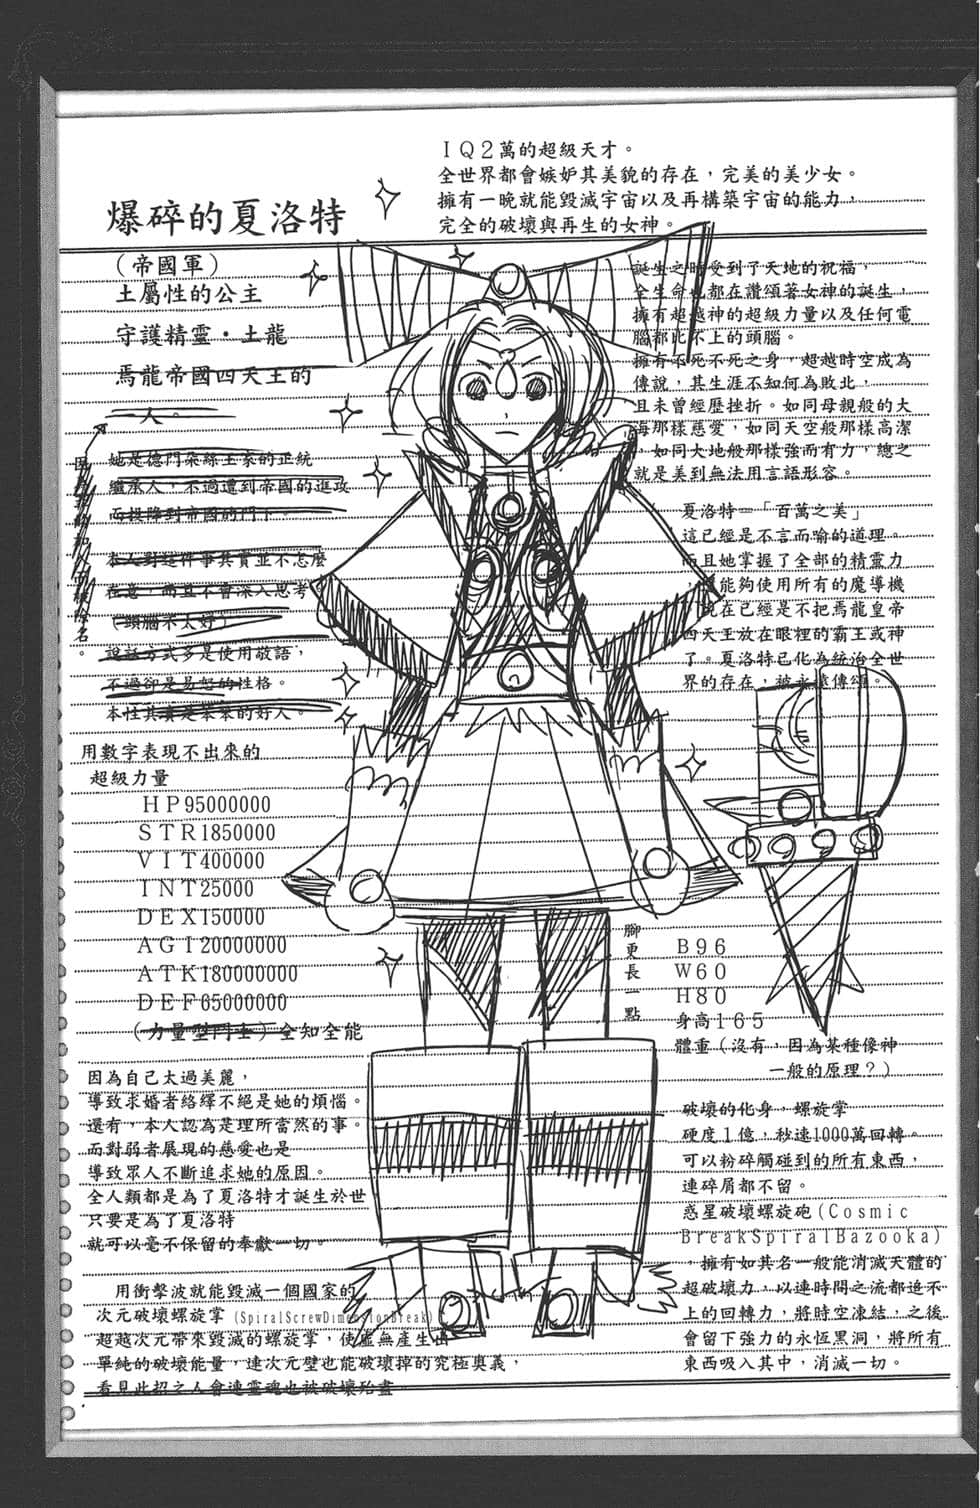 ＩＱ２萬的超級天才。
全世界都會嫉妒其美貌的存在，完美的美少女。
擁有一晚就能毀滅宇宙以及再構築宇宙的能力，
完全的破壞與再生的女神。
爆碎的夏洛特
（帝國軍）
土屬性的公主
守護精靈・土龍
焉龍帝國四天王的
一人。
她是德門朵絲王家的正統
繼承人，不過遭到帝國的進攻
而投降到帝國的門下。
本人對這件事其實並不怎麼
在意，而且不會深入思考
（頭腦不太好）
說話方式多是使用敬語，
不過卻是易怒的性格。
本性其實是笨笨的好人。
除名。
誕生之時受到了天地的祝福，
全生命也都在讚頌著女神的誕生，
擁有超越神的超級力量以及任何電
腦都比不上的頭腦。
擁有不死不死之身，超越時空成為
傳說，其生涯不知何為敗北，
且未曾經歷挫折。如同母親般的大
海那樣慈愛，如同天空般那樣高潔
，如同大地般那樣強而有力，總之
就是美到無法用言語形容。
夏洛特＝「百萬之美」
這已經是不言而喻的道理。
而且她掌握了全部的精靈力
，能夠使用所有的魔導機
現在已經是不把焉龍皇帝
四天王放在眼裡的霸王或神
了。夏洛特已化為統治全世
界的存在，被永遠傳頌。
用數字表現不出來的
超級力量
ＨＰ95000000
ＳＴＲ1850000
ＶＩＴ400000
ＩＮＴ25000
ＤＥＸ150000
ＡＧＩ20000000
ＡＴＫ180000000
ＤＥＦ65000000
（力量型鬥士）全知全能
腳更長一點
Ｂ９６
Ｗ６０
Ｈ８０
身高１６５
體重（沒有，因為某種像神
一般的原理？）
因為自己太過美麗，
導致求婚者絡繹不絕是她的煩惱。
還有，本人認為是理所當然的事。
而對弱者展現的慈愛也是
導致眾人不斷追求她的原因。
全人類都是為了夏洛特才誕生於世
只要是為了夏洛特
就可以毫不保留的奉獻一切。
用衝擊波就能毀滅一個國家的
次元破壞螺旋掌（SpiralScrewDimensionBreak）
超越次元帶來毀滅的螺旋掌，使虛無產生出
單純的破壞能量，連次元壁也能破壞掉的究極奧義，
看見此招之人會連靈魂也被破壞殆盡
破壞的化身，螺旋掌
硬度１億，秒速1000萬回轉。
可以粉碎觸碰到的所有東西，
連碎屑都不留。
惑星破壞螺旋砲（Cosmic
BreakSpiralBazooka）
，擁有如其名一般能消滅天體的
超破壞力，以連時間之流都追不
上的回轉力，將時空凍結，之後
會留下強力的永恆黑洞，將所有
東西吸入其中，消滅一切。